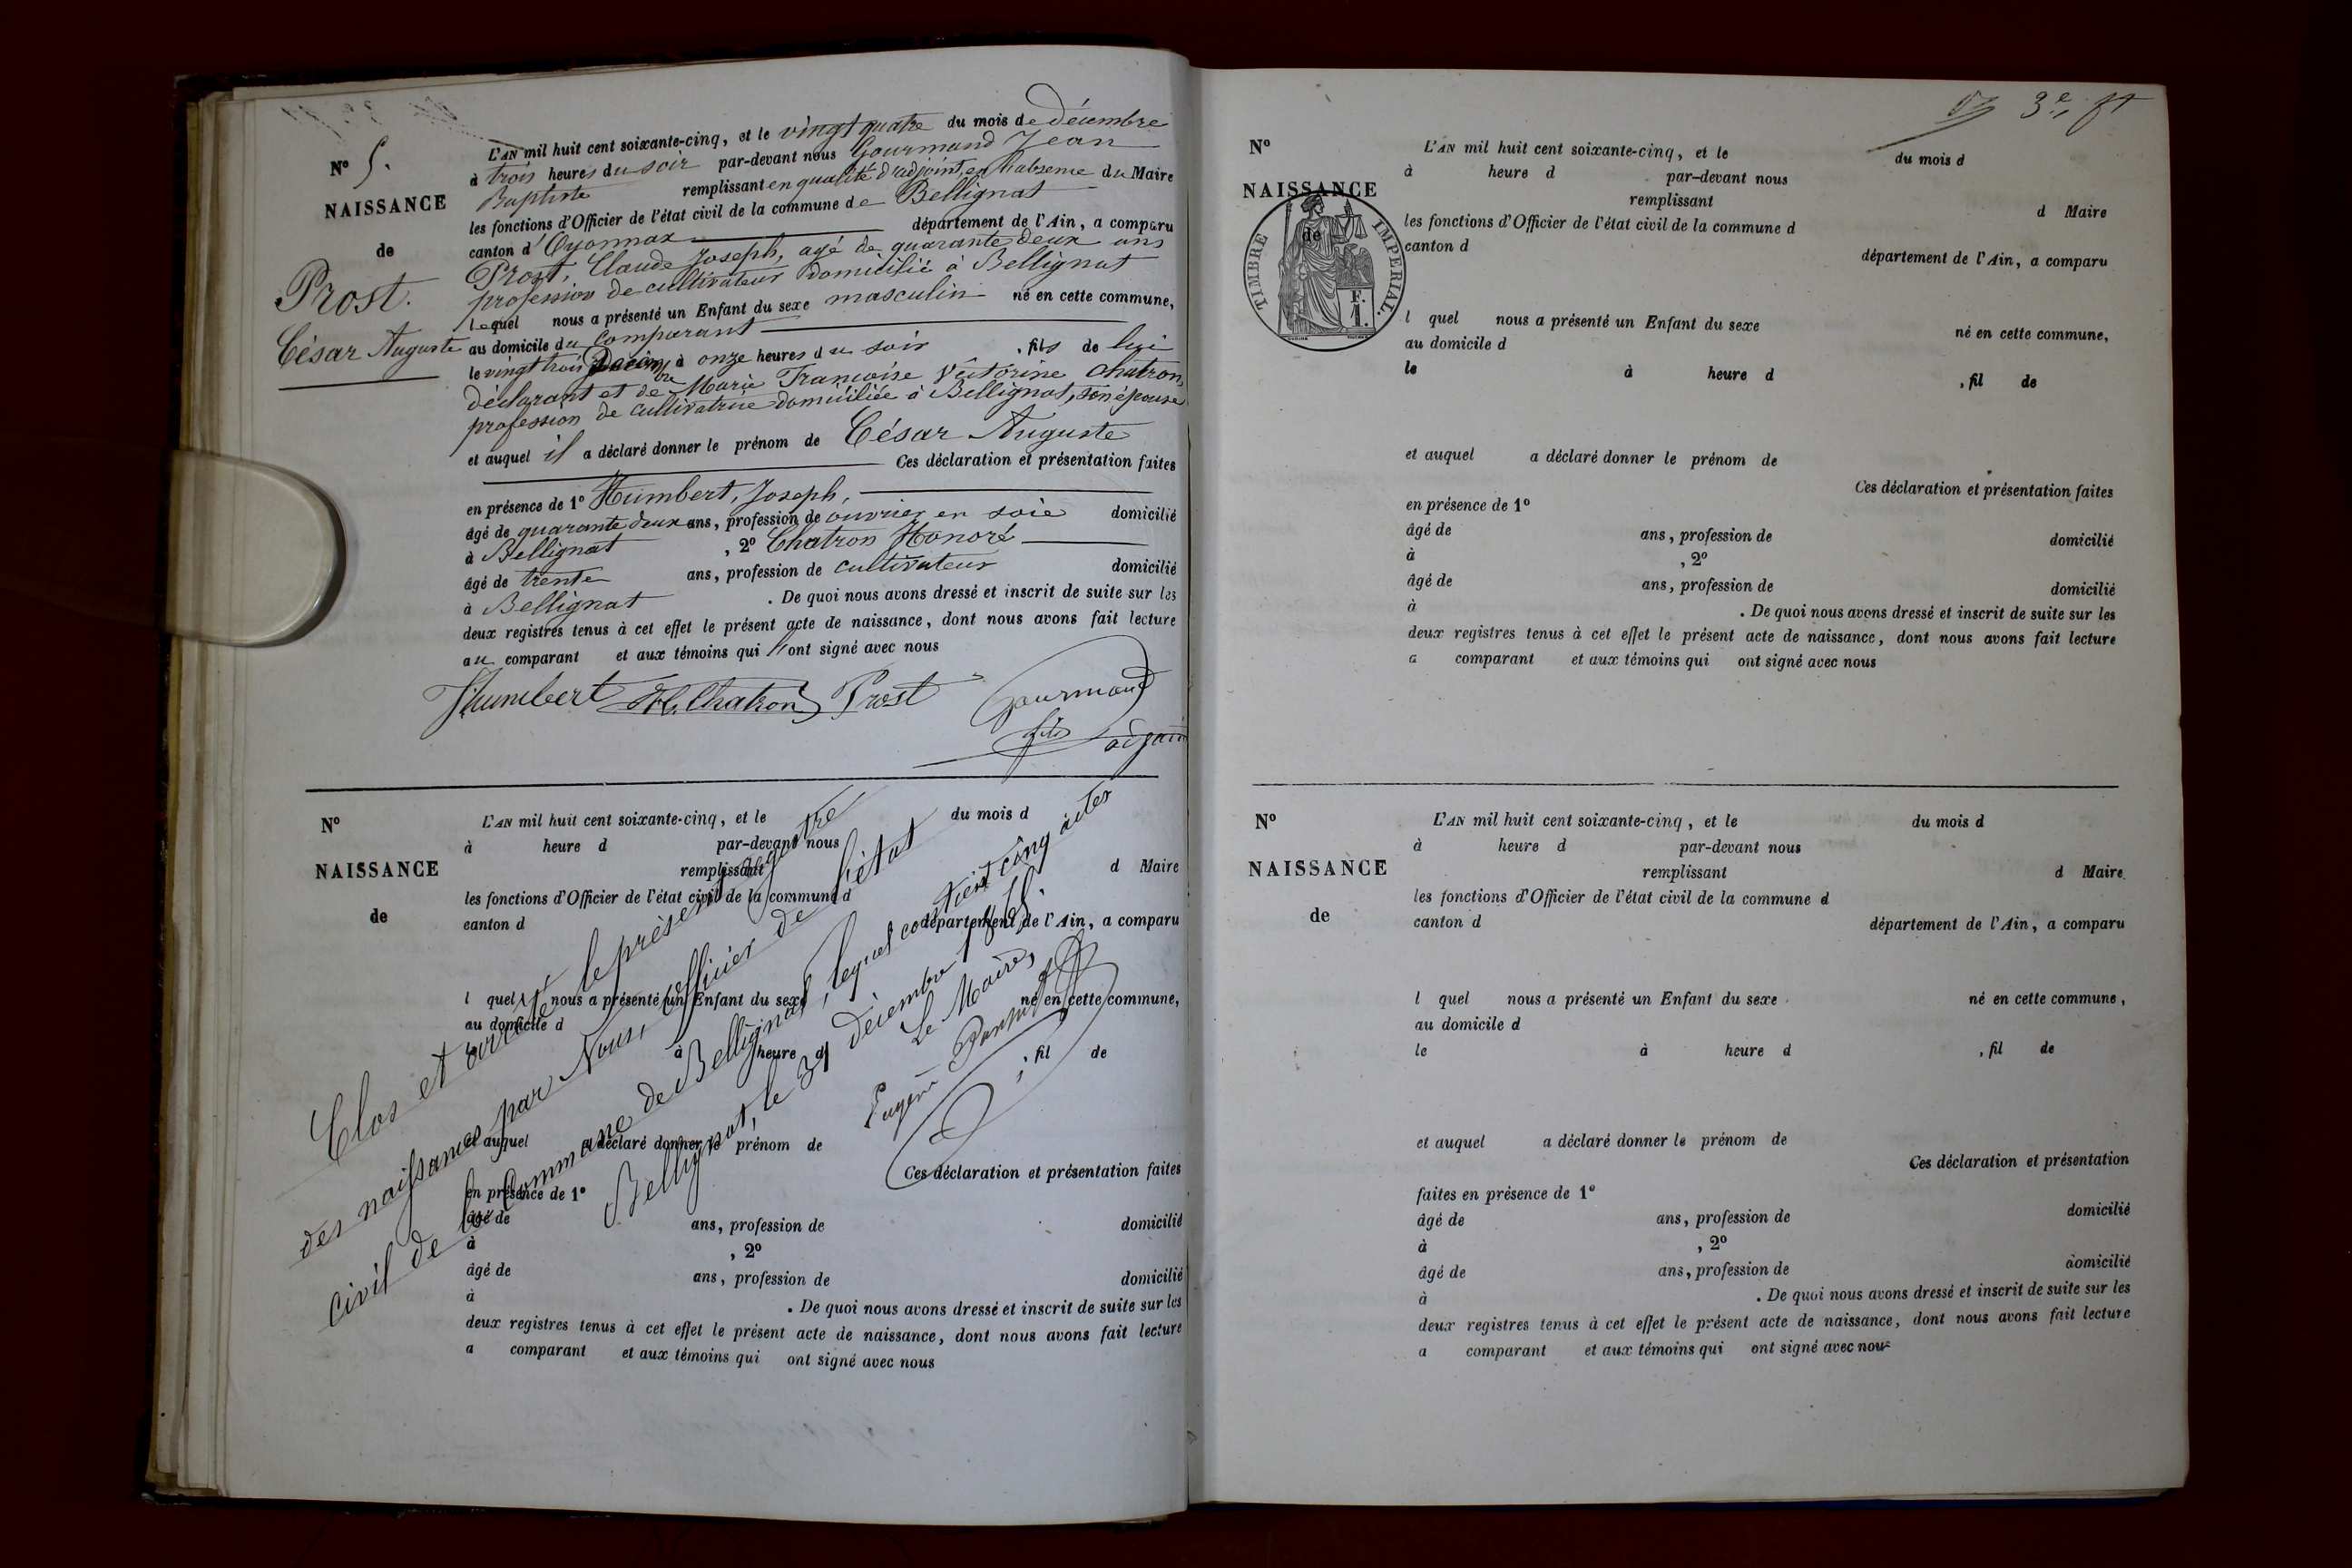 N° 5.
NAISSANCE
de
Prost.
César Auguste
L'AN mil huit cent soixante-cinq, et le vingt quatre du mois de décembre
à trois heures du soir par-devant nous Gourmand Jean
Baptiste remplissant en qualité d'adjoint, en l'absence du Maire
les fonctions d'Officier de l'état civil de la commune de Bellignat
canton d'Oyonnax département de l'Ain, a comparu
Prost, Claude Joseph, agé de quarante deux ans
profession de cultivateur domicilié à Bellignat
lequel nous a présenté un Enfant du sexe masculin né en cette commune,
au domicile du comparant
le vingt trois à onze heures du soir , fils de lui
déclarant et de Marie Françoise Victorine Chatron,
profession de cultivatrice domiciliée à Bellignat, son épouse
et auquel il a déclaré donner le prénom de César Auguste
Ces déclaration et présentation faites
en présence de 1° Humbert, Joseph,
âgé de quarante deux ans, profession de ouvrier en soie domicilié
à Bellignat , 2° Chatron Honoré
âgé de trente ans, profession de cultivateur domicilié
à Bellignat . De quoi nous avons dressé et inscrit de suite sur les
deux registres tenus à cet effet le présent acte de naissance, dont nous avons fait lecture
au comparant et aux témoins qui ont signé avec nous
J Humbert H. Chatron Prost Gourmand
fils adjoint
N°
NAISSANCE
de
L'AN mil huit cent soixante-cinq, et le du mois d
à heure d par-devant nous
remplissant d Maire
les fonctions d'Officier de l'état civil de la commune d
canton d département de l'Ain, a comparu
l quel nous a présenté un Enfant du sexe né en cette commune,
au domicile d
à heure d , fil de
et auquel a déclaré donner le prénom de
Ces déclaration et présentation faites
en présence de 1°
âgé de ans, profession de domicilié
à , 2°
âgé de ans, profession de domicilié
à . De quoi nous avons dressé et inscrit de suite sur les
deux registres tenus à cet effet le présent acte de naissance, dont nous avons fait lecture
a comparant et aux témoins qui ont signé avec nous
Clos et arrêté le présent registre
des naissances par Nous, officier de l'état
civil de la Commune de Bellignat, lequel contient cinq actes
Bellignat, le 31 décembre 1865.
Le Maire,
3e ft
N°
NAISSANCE
de
TIMBRE IMPERIAL.
F.
1.
L'AN mil huit cent soixante-cinq, et le du mois d
à heure d par-devant nous
remplissant d Maire
les fonctions d'Officier de l'état civil de la commune d
canton d département de l'Ain, a comparu
l quel nous a présenté un Enfant du sexe né en cette commune,
au domicile d
le à heure d , fil de
et auquel a déclaré donner le prénom de
Ces déclaration et présentation faites
en présence de 1°
âgé de ans, profession de domicilié
à , 2°
âgé de ans, profession de domicilié
à . De quoi nous avons dressé et inscrit de suite sur les
deux registres tenus à cet effet le présent acte de naissance, dont nous avons fait lecture
a comparant et aux témoins qui ont signé avec nous
N°
NAISSANCE
de
L'AN mil huit cent soixante-cinq, et le du mois d
à heure d par-devant nous
remplissant d Maire
les fonctions d'Officier de l'état civil de la commune d
canton d département de l'Ain, a comparu
l quel nous a présenté un Enfant du sexe né en cette commune,
au domicile d
le à heure d , fil de
et auquel a déclaré donner le prénom de
Ces déclaration et présentation
faites en présence de 1°
âgé de ans, profession de domicilié
à , 2°
âgé de ans, profession de domicilié
à . De quoi nous avons dressé et inscrit de suite sur les
deux registres tenus à cet effet le présent acte de naissance, dont nous avons fait lecture
a comparant et aux témoins qui ont signé avec nous